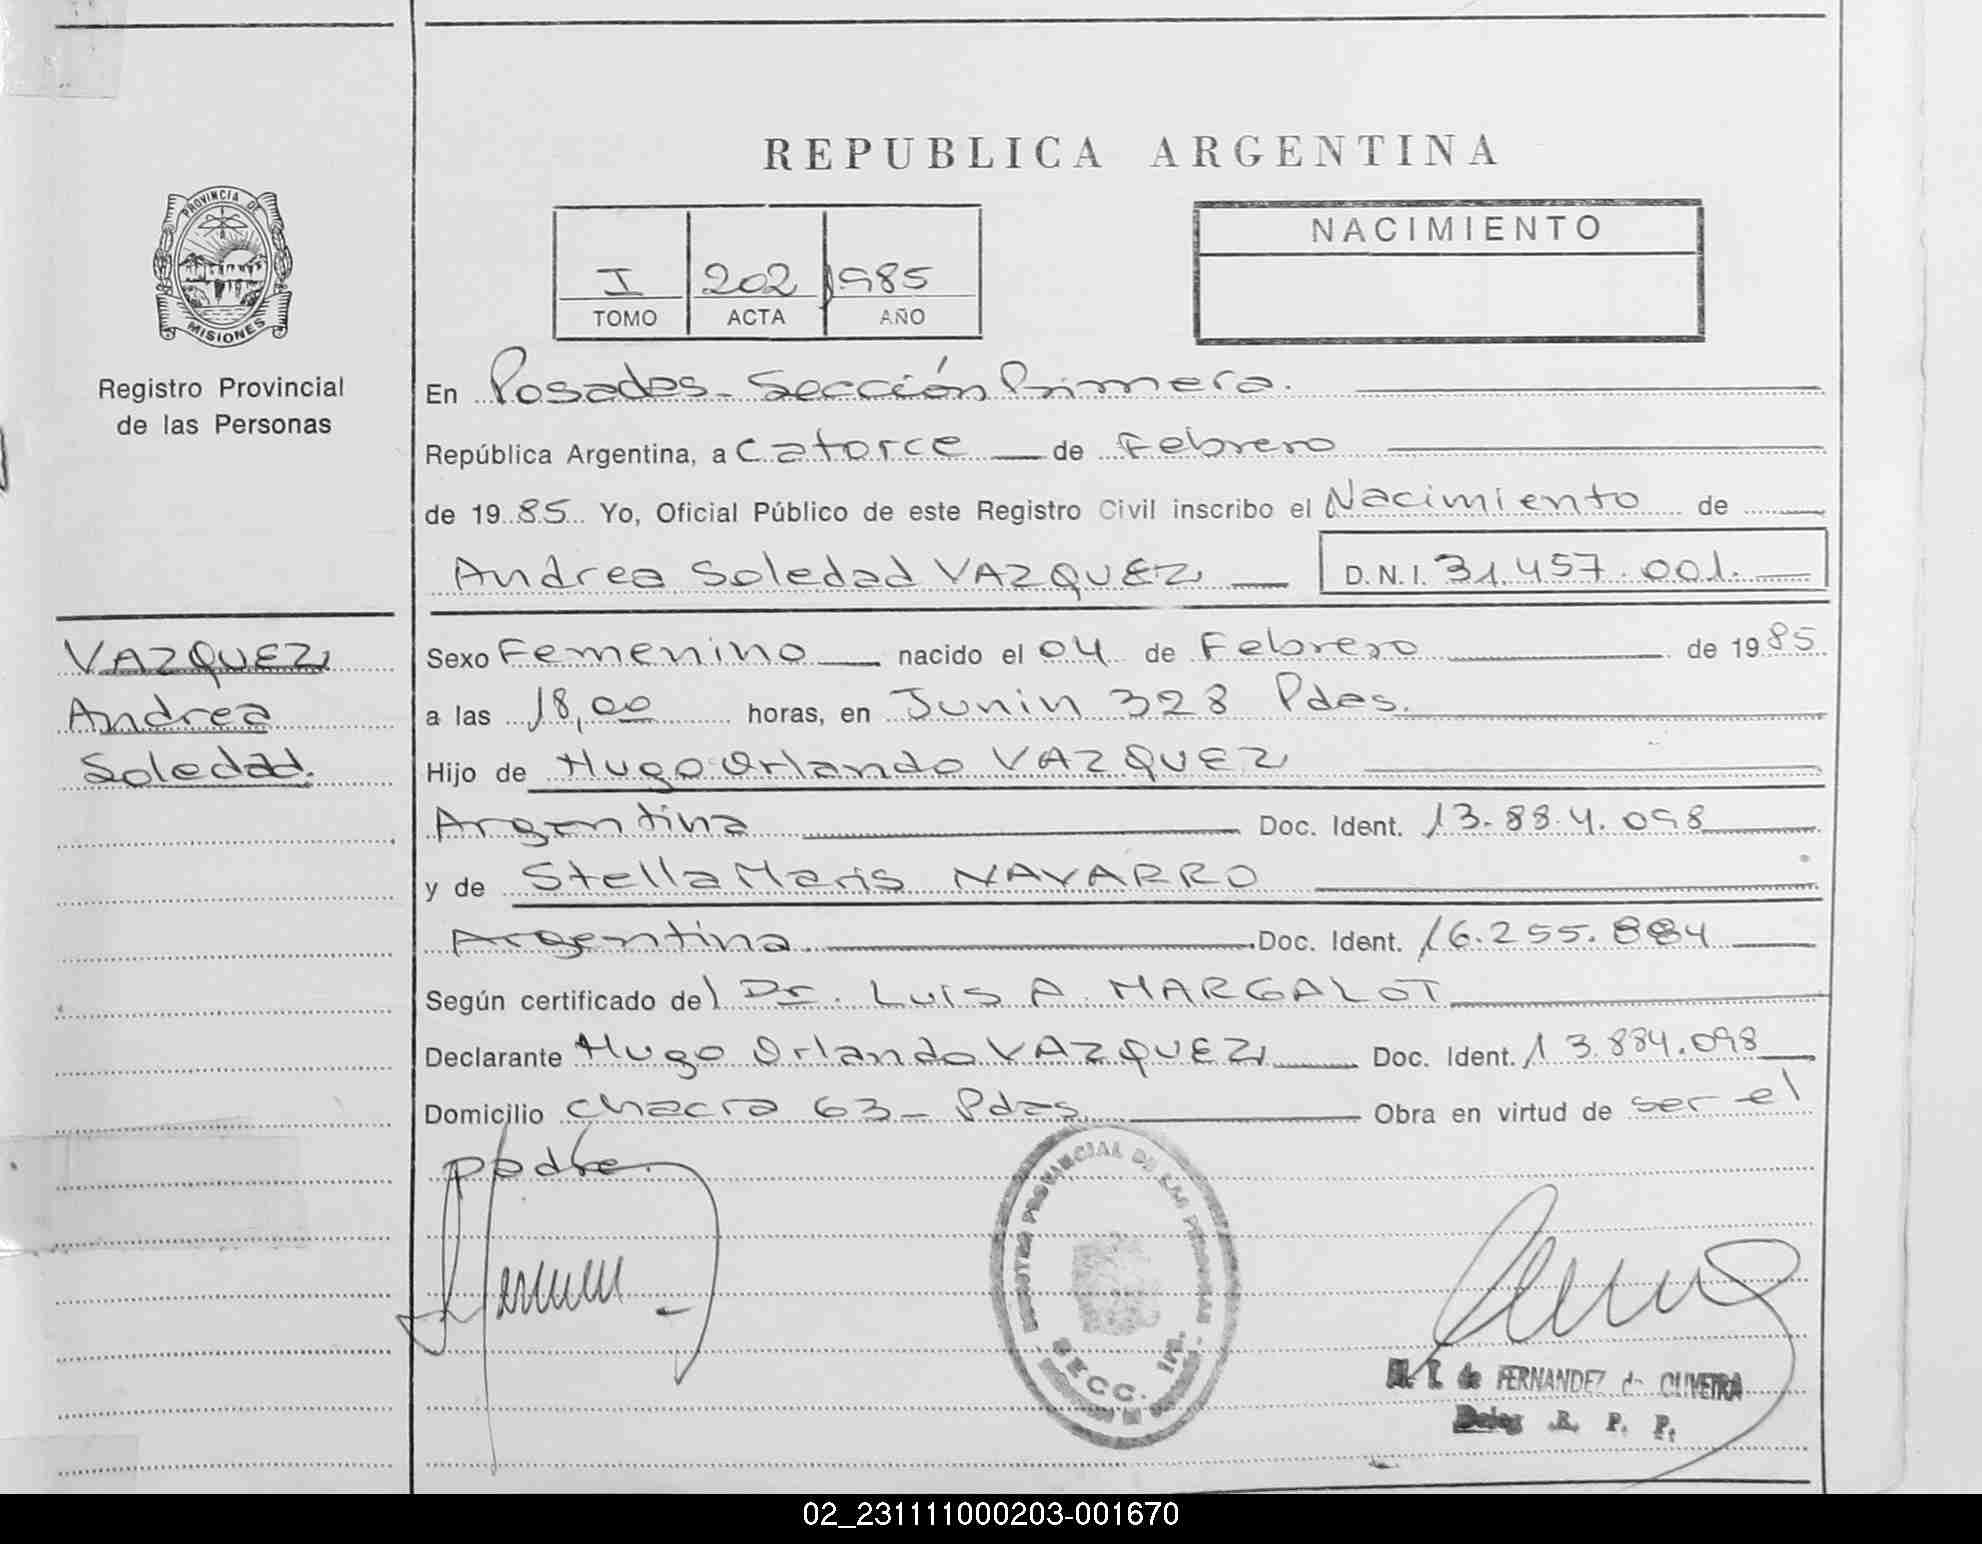 REPUBLICA ARGENTINA
PROVINCIA DE
MISIONES
Registro Provincial
de las Personas
I 202 1985
TOMO ACTA AÑO
NACIMIENTO
En Posadas - Sección Primera.
República Argentina, a Catorce de Febrero
de 1985 Yo, Oficial Público de este Registro Civil inscribo el Nacimiento de
Andrea Soledad VAZQUEZ D.N.I. 31.457.001.
VAZQUEZ
Andrea
Soledad.
Sexo Femenino nacido el 04 de Febrero de 1985
a las 18,00 horas, en Junin 328 Pdas.
Hijo de Hugo Orlando VAZQUEZ
Argentina Doc. Ident. 13.884.098
y de Stella Maris NAVARRO
Argentina. Doc. Ident. 16.255.884
Según certificado del Dr. Luis A. MARGALOT
Declarante Hugo Orlando VAZQUEZ Doc. Ident. 13.884.098
Domicilio chacra 63 - Pdas. Obra en virtud de ser el
padre.
PROVINCIAL DE LAS PERSONAS
SECC. 1ra.
de FERNANDEZ de OLIVEIRA
Deleg. R. P. P.
02_231111000203-001670